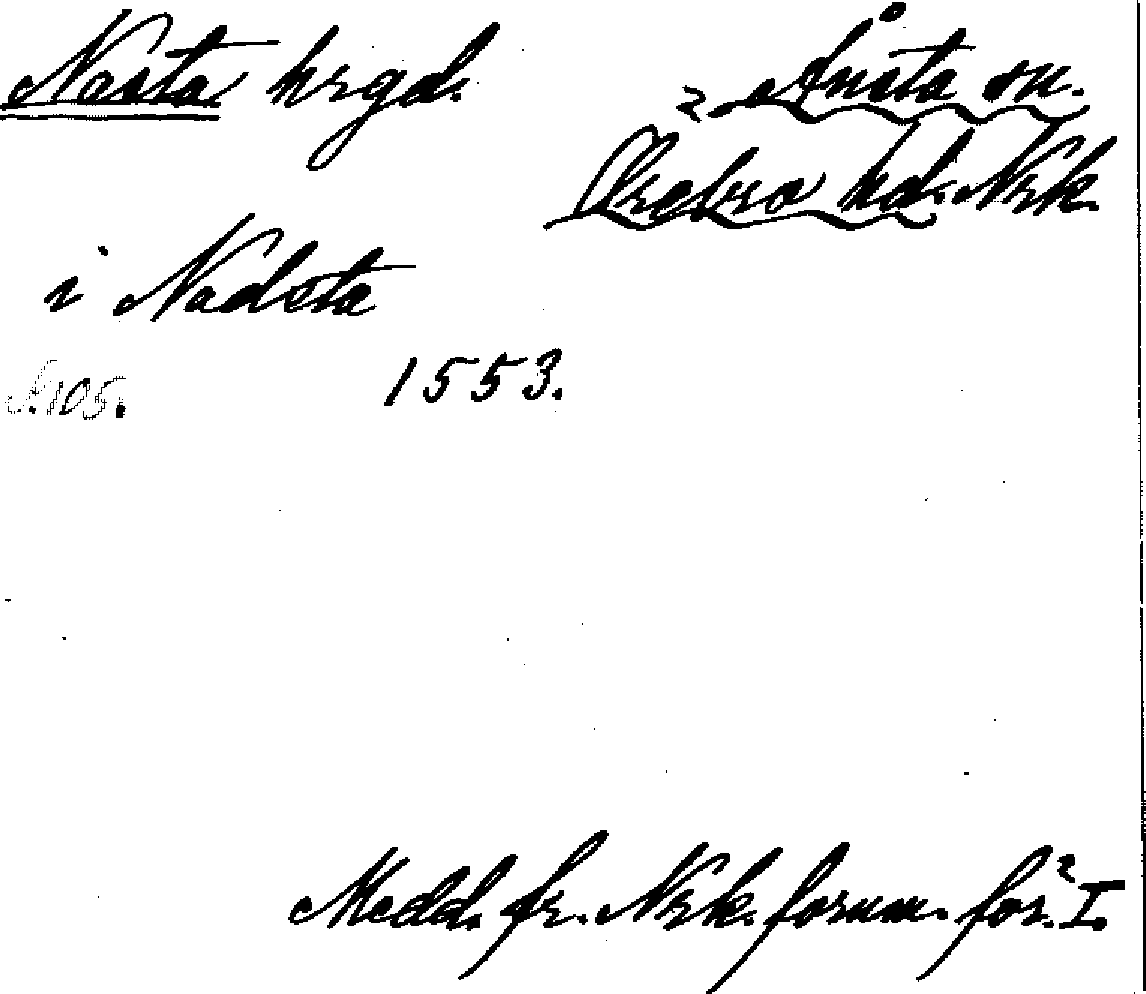 Nasta hrgd.
Ånsta sn.
Örebro hd. Nrk.
i Nadsta
s. 105. 1553.
Medd. fr. Nrk. fornm. för. I.